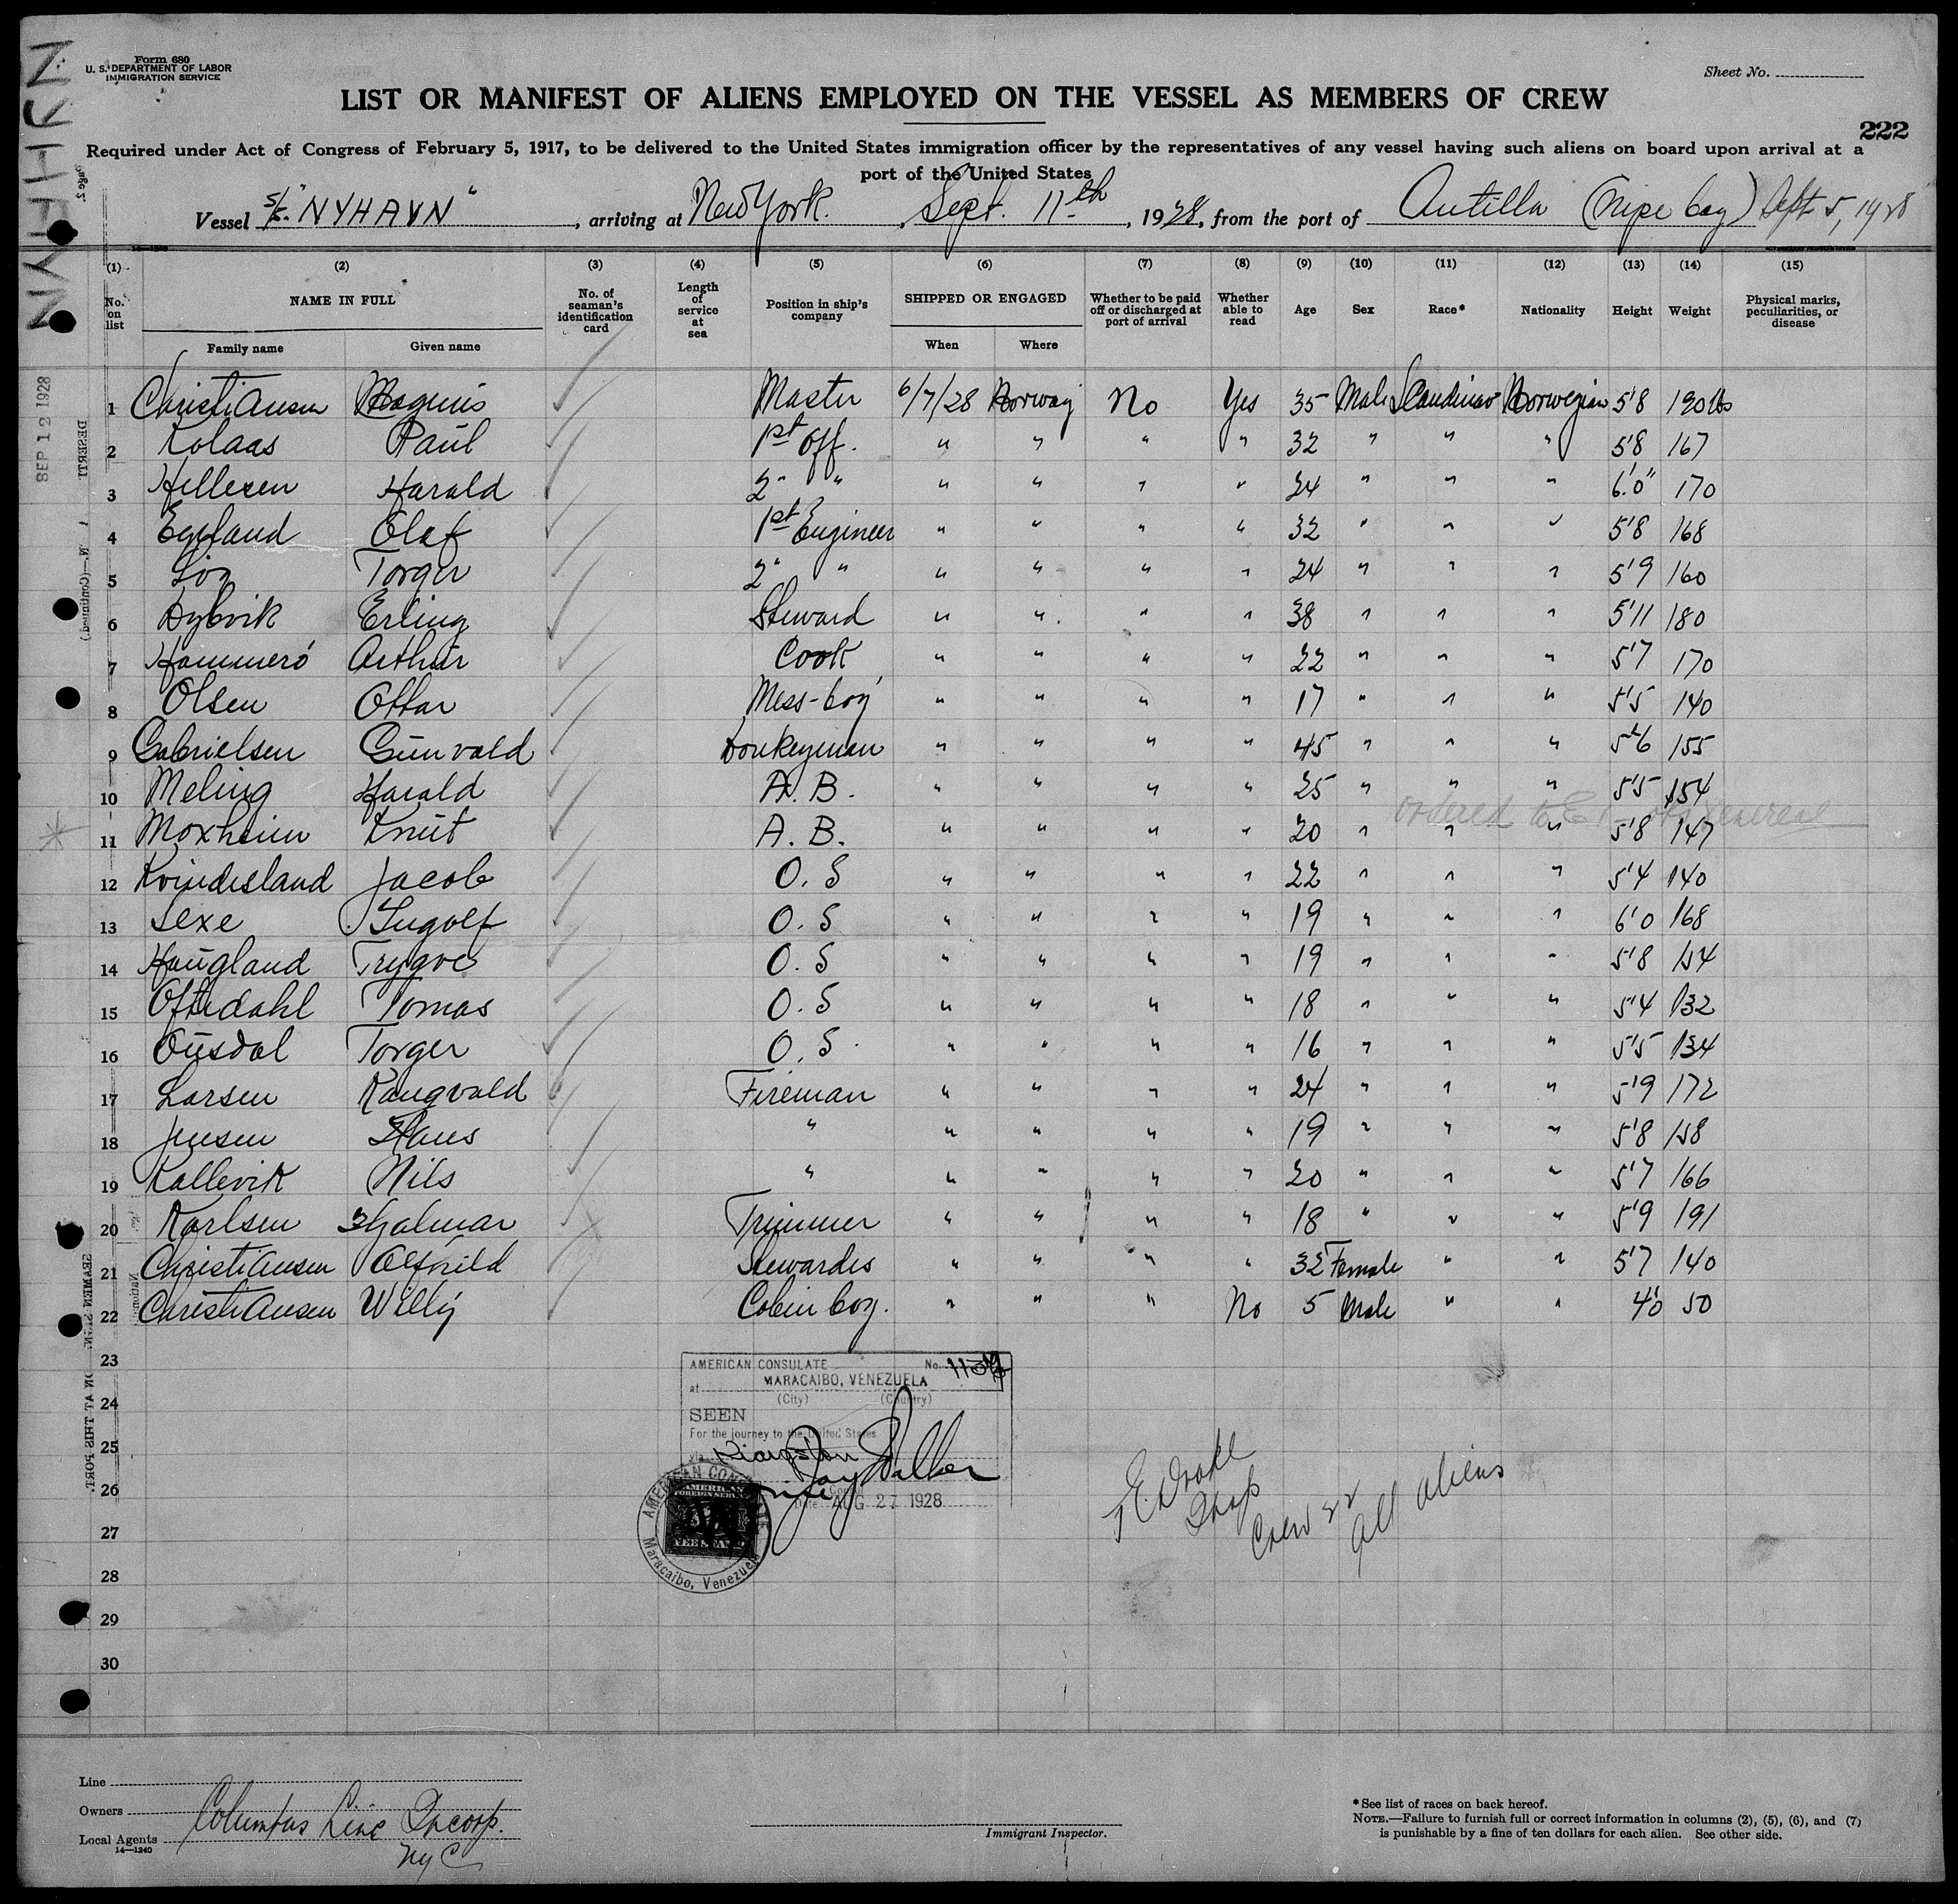 Form 680
U. S. DEPARTMENT OF LABOR
IMMIGRATION SERVICE
Sheet No.
LIST OR MANIFEST OF ALIENS EMPLOYED ON THE VESSEL AS MEMBERS OF CREW
222
Required under Act of Congress of February 5, 1917, to be delivered to the United States immigration officer by the representatives of any vessel having such aliens on board upon arrival at a
port of the United States
Vessel S/S. "NYHAVN", arriving at New York., Sept. 11th, 1928, from the port of Antilla (Nipe bay) Sept 5, 1928
(1) (2) (3) (4) (5) (6) (7) (8) (9) (10) (11) (12) (13) (14) (15)
No. on list NAME IN FULL No. of seaman's identification card Length of service at sea Position in ship's company SHIPPED OR ENGAGED Whether to be paid off or discharged at port of arrival Whether able to read Age Sex Race* Nationality Height Weight Physical marks, peculiarities, or disease
Family name Given name When Where
SEP 12 1928
1 Christiansen Magnus Master 6/7/28 Norway No Yes 35 Male Scandinav Norwegian 5'8 190 lbs
2 Kolaas Paul 1st Off. " " " " 32 " " " 5'8 167
3 Hellesen Harald 2" " " " " " 24 " " " 6'0" 170
4 Egeland Olaf 1st Engineer " " " " 32 " " " 5'8 168
5 Torger 2" " " " " " 24 " " " 5'9 160
6 Dybvik Erling Steward " " " " 38 " " " 5'11 180
7 Hammerö Arthur Cook " " " " 22 " " " 5'7 170
8 Olsen Ottar Mess-boy " " " " 17 " " " 5'5 140
9 Gabrielsen Gunvald Donkeyman " " " " 45 " " " 5'6 155
10 Meling Harald A. B. " " " " 25 " " " 5'5 154
ordered to E I
11 Moxheim Knut A. B. " " " " 20 " " " 5'8 147
12 Kvindesland Jacob O. S " " " " 22 " " " 5'4 140
13 Sexe Ingolf O. S " " " " 19 " " " 6'0 168
14 Haugland Trygve O. S " " " " 19 " " " 5'8 154
15 Oftedahl Tomas O. S " " " " 18 " " " 5'4 132
16 Ousdal Torger O. S. " " " " 16 " " " 5'5 134
17 Larsen Rangvald Fireman " " " " 24 " " " 5'9 172
18 Jensen Hans " " " " " 19 " " " 5'8 158
19 Kallevik Nils " " " " " 20 " " " 5'7 166
20 Karlsen Hjalmar Trimmer " " " " 18 " " " 5'9 191
21 Christiansen Alfhild Stewardes " " " " 32 Female " " 5'7 140
22 Christiansen Willy Cabin boy. " " " No 5 Male " " 4'0 50
23
24
25
26
27
28
29
30
AMERICAN CONSULATE No.
at MARACAIBO, VENEZUELA
(City) (Country)
SEEN
For the journey to the United States
via Kingston
Jay Walker
Date AUG 27 1928
AMERICAN
FOREIGN SERVICE
FEE STAMP
Maracaibo, Venezuela
J E. Drake
Insp
Crew 22
all aliens
Line
Owners
Local Agents
Columbus Line Incorp.
NYC
14—1240
Immigrant Inspector.
* See list of races on back hereof.
NOTE.—Failure to furnish full or correct information in columns (2), (5), (6), and (7)
is punishable by a fine of ten dollars for each alien. See other side.